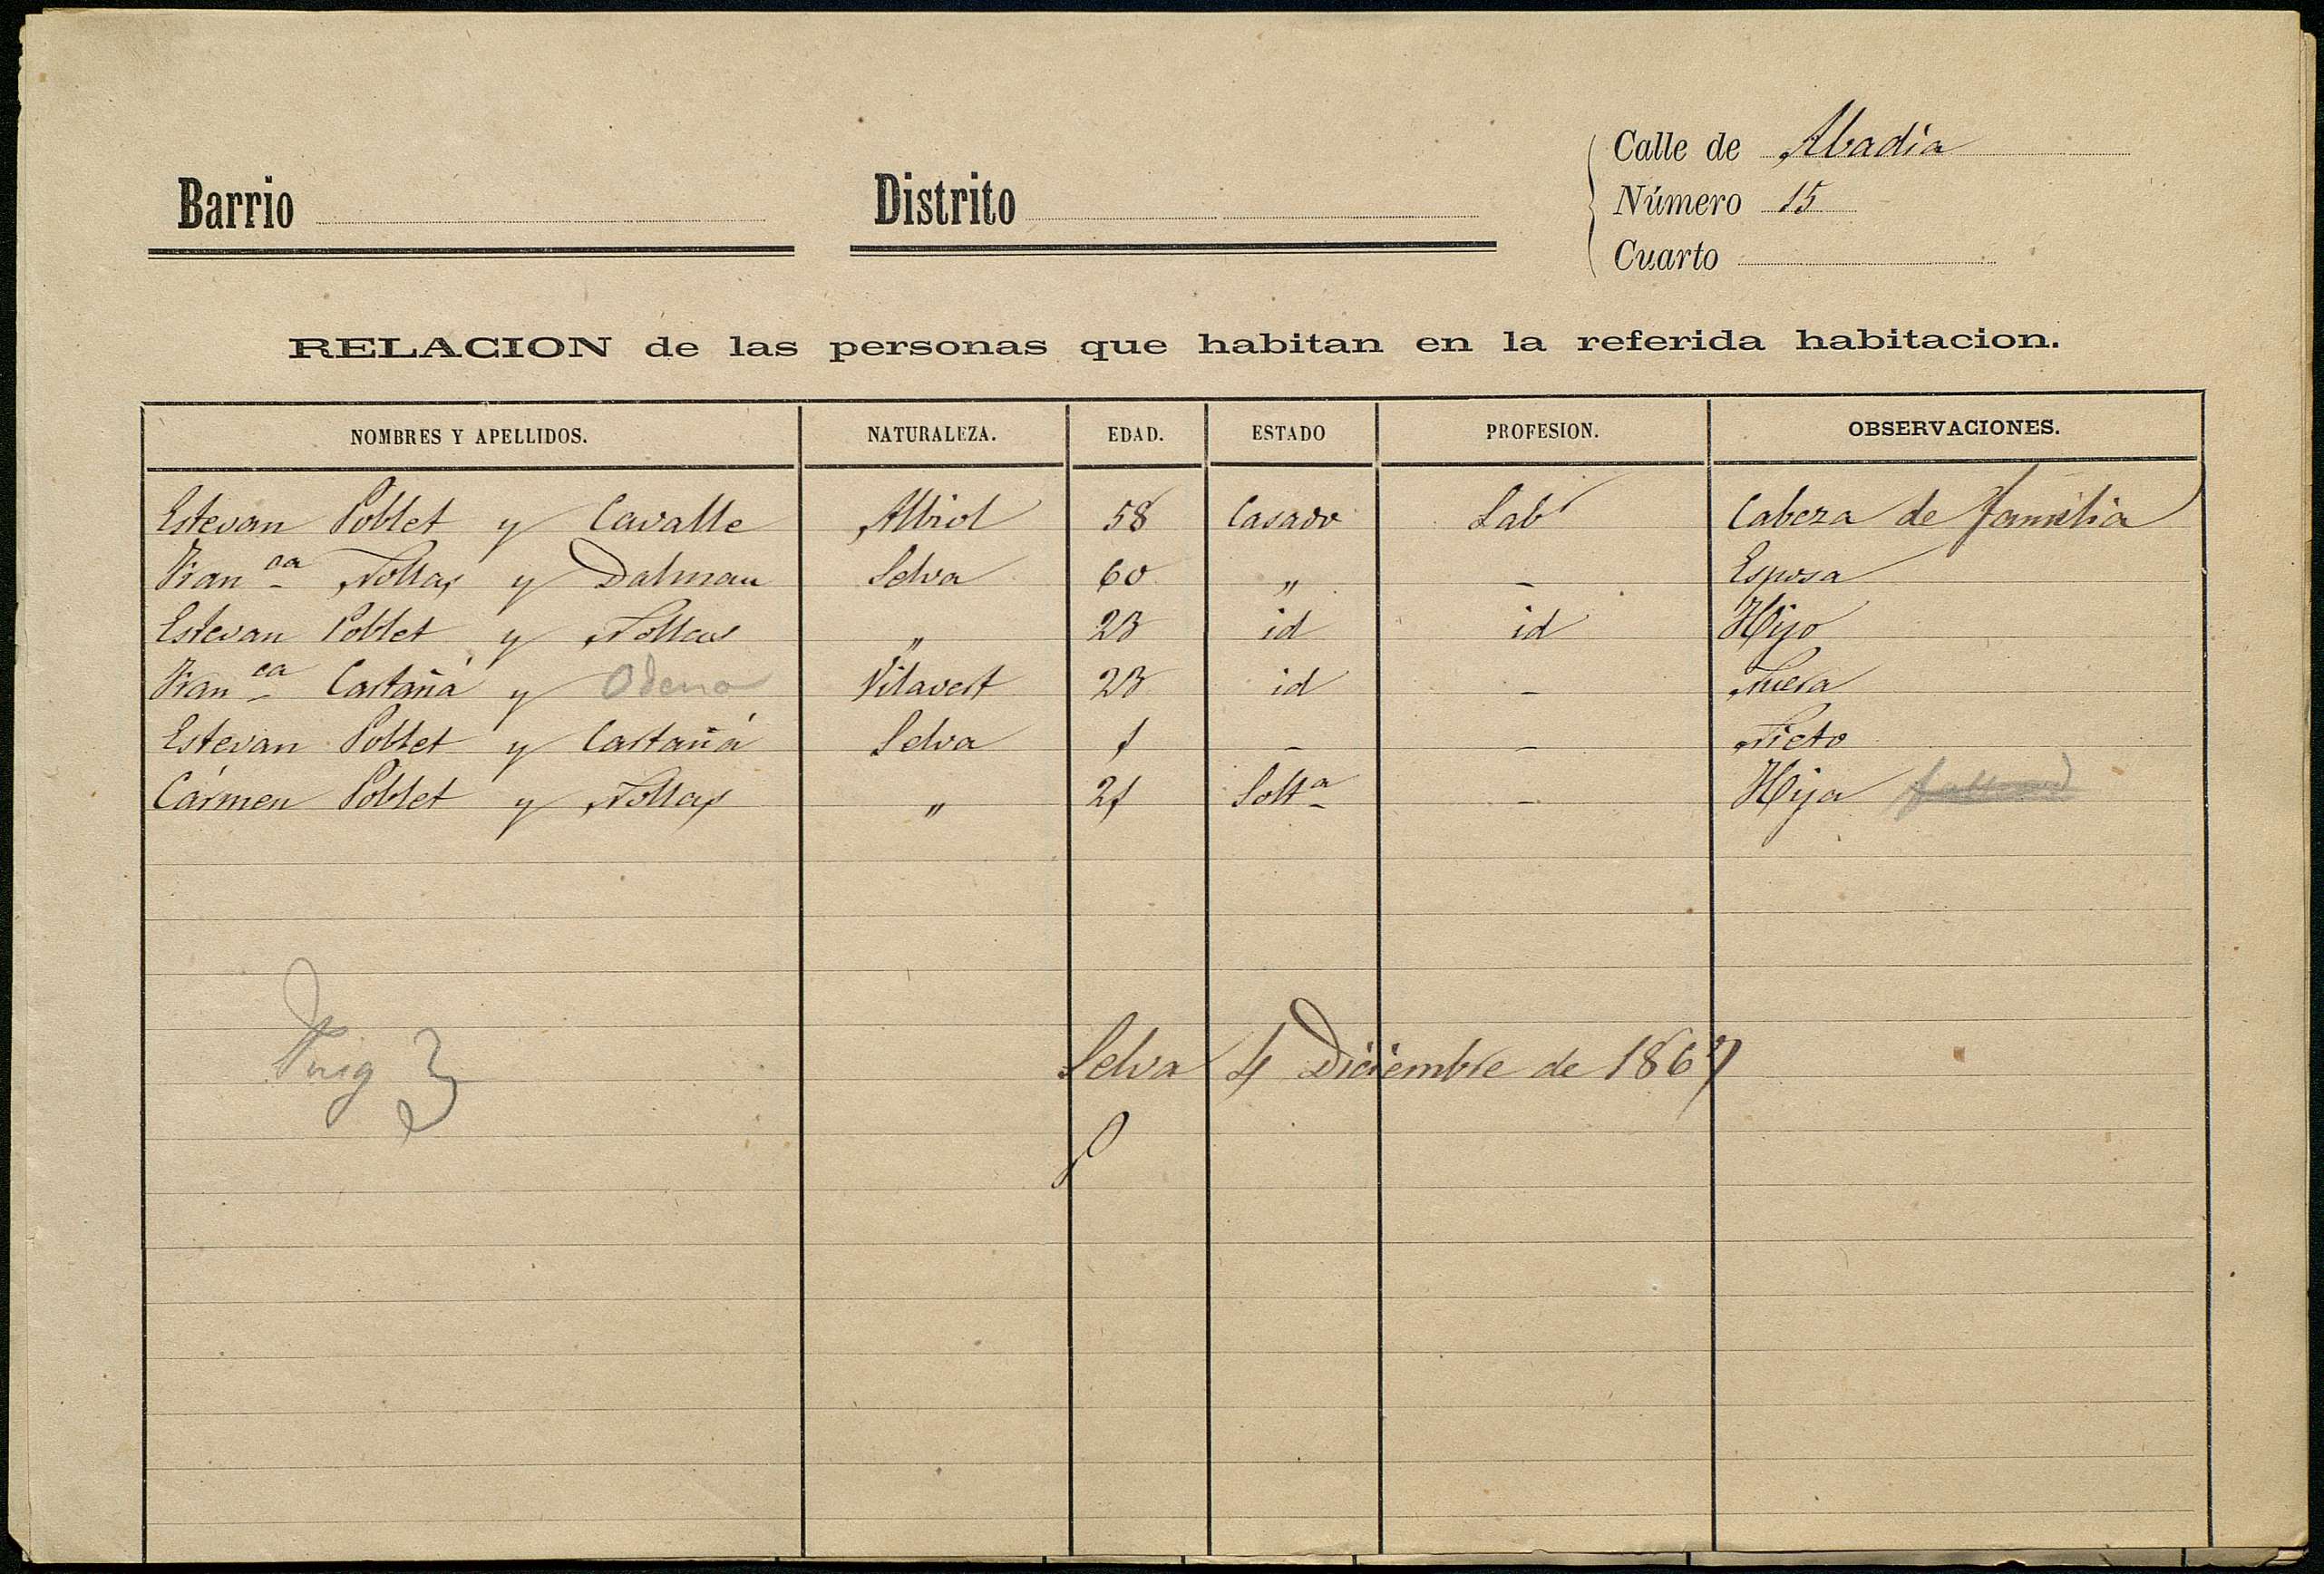 Calle de Abadía
Barrio Distrito Número 15
Cuarto
RELACION de las personas que habitan en la referida habitacion.
NOMBRES Y APELLIDOS. NATURALEZA. EDAD. ESTADO PROFESION. OBSERVACIONES.
Estevan Poblet y Cavalle Albiol 58 Casado Labr Cabeza de familia
Franca Nollas y Dalmau Selva 60 " - Esposa
Estevan Poblet y Nollas " 23 id id Hijo
Franca Castañá y Odena Vilavert 23 id - Nuera
Estevan Poblet y Castañá Selva 1 - - Nieto
Cármen Poblet y Nollas " 21 Solta - Hija
Puig 3 Selva 4 Diciembre de 1867
P